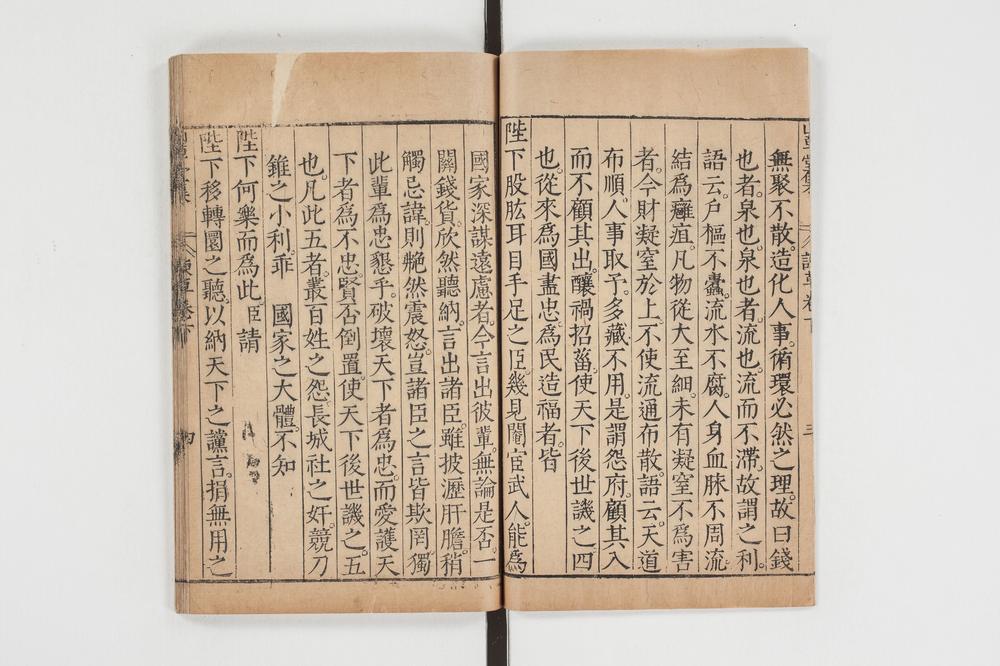 無聚不散。造化人事。循環必然之理。故曰錢
也者。泉也。泉也者。流也。流而不滯。故謂之利。
語云。戶樞不蠹。流水不腐。人身血脉不周流。
結爲癰疽。凡物從大至細。未有凝窒不爲害
者。今財凝窒於上。不使流通布散。語云。天道
布順。人事取予。多藏不用。是謂怨府。顧其入
而不顧其出。釀禍招菑。使天下後世譏之。四
也。從來爲國盡忠。爲民造福者。皆
陛下股肱耳目手足之臣。幾見閹宦武人。能爲
國家深謀遠慮者。今言出彼輩。無論是否。一
關錢貨。欣然聽納。言出諸臣。雖披瀝肝膽。稍
觸忌諱。則艴然震怒。豈諸臣之言皆欺罔。獨
此輩爲忠懇乎。破壞天下者爲忠。而愛護天
下者爲不忠。賢否倒置。使天下後世譏之。五
也。凡此五者。叢百姓之怨。長城社之奸。競刀
錐之小利。乖 國家之大體。不知
陛下何樂而爲此。臣請
陛下移轉圜之聽。以納天下之讜言。捐無用之
四